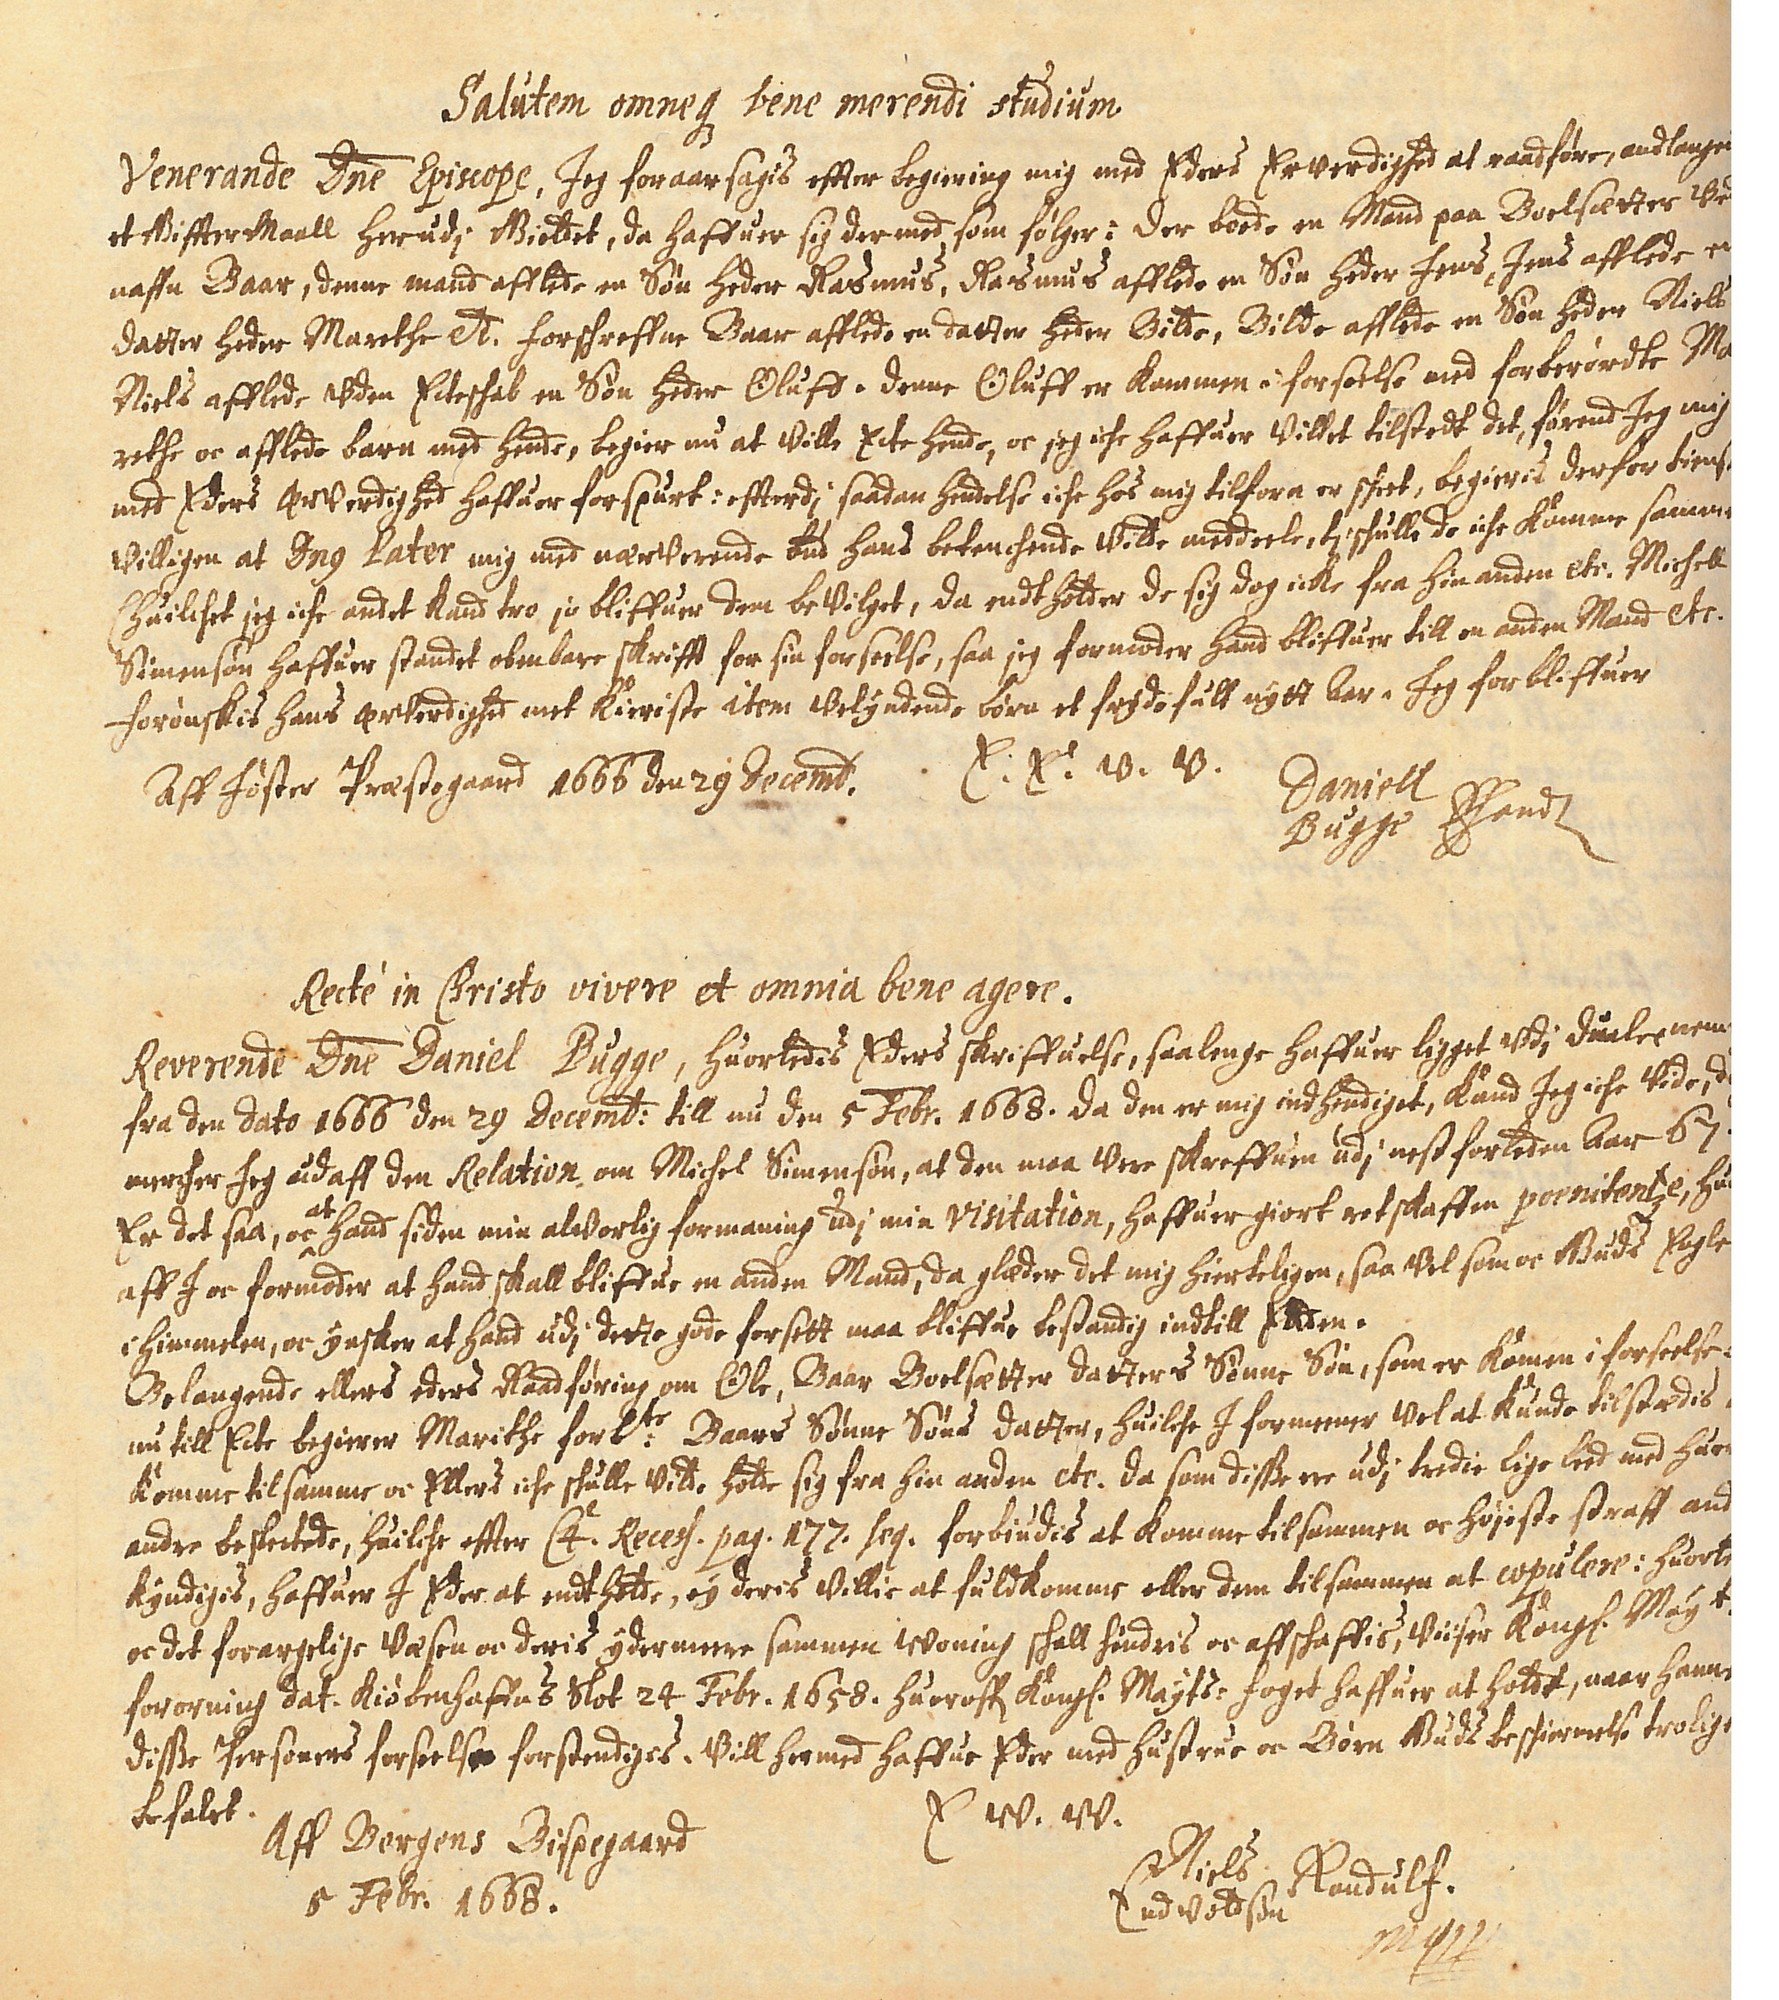 Salutem omneq bene merendi studium
Venerande Dne Episcope, Jeg foraarsagis effter begiering mig med Eders Erverdighed at raadføre, andlangen
et GiffterMaall her udj Gieldet, da haffuer sig der med som følger: Der boede en Mand paa Boelsætter ved
naffn Baar, denne mand afflede en Søn heder Rasmus, Rasmus afflede en Søn heder Jens, Jens afflede en
datter heder Marethe et. forschreffne Baar afflede en datter heder Bilde, Bilde afflede en Søn heder Niels
Niels afflede vden Ecteschab en Søn heder Oluff. denne Oluff er kommen i forseelse med forberørdte Ma
rethe oc afflede barn med hende, begier nu at ville Ecte hende, oc jeg iche haffuer villet tilstedt det, førend Jeg mig
med Eders Ærverdighed haffuer forspurt: effterdj saadan hendelse iche hos mig tilforn er scheet, begieris derfor tienst
villigen at Dn9 Pater mig med nærverende bud hans betenchende vilde meddeele, tj schulle de iche komme samme
(huilchet jeg iche andet kand tro jo bliffuer dem bevilget, da endtholder de sig dog icke fra hin anden etc. Michell
Simensøn haffuer standet obenbare skrifft for sin forseelse, saa jeg formoder hand bliffuer till en anden Mand etc.
forønskis hans Ærverdighed met kieriste item velyndende børn et frydefult nytt Aar. Jeg forbliffuer
Aff Jøster Præstegaard 1666 den 29 Decemb. E. E. v. v. Daniell
Bugge Ehand
Recté in Christo vivere et omnia bene agere.
Reverende Dne Daniel Bugge, huorledis Eders skriffuelse, saalenge haffuer ligget vdj dualee nem
fra den dato 1666 den 29 Decemb: till nu den 5 Febr. 1668. da den er mig indhendiget, kand Jeg iche vide, d
mercher Jeg udaff den Relation om Michel Simensøn, at den maa vere skreffuen udj nest forleden Aar 67.
Er det saa, oc at hand siden min alvorlig formaning udj min visitation, haffuer giort retskaffen poenitentze, hu
aff J oc formoder at hand skall bliffue en anden Mand, da glæder det mig hierteligen, saa vel som oc Guds Engle
i himmelen, oc ynsker at hand udj dette gode forsett maa bliffue bestandig indtill Enden.
Belangende ellers eders Raadføring om Ole, Baar Boelsætter datters Sønne Søn, som er komen i forseelse
nu till Ecte begierer Marithe forbte: Baars Sønne Søns datter, huilche J formeener vel at kunde tilstædis
komme tilsamme oc Ellers iche schulle ville holde sig fra hin anden etc. da som disse ere udj tredie lige leed med huer
andre beslectede, huilche effter C4. Recess. pag. 177. seq. forbiudis at komme tilsammen oc høyeste straff and
kyndigis, haffuer J Eder at endtholde, ey deris villie at fuldkomme eller dem tilsammen at copulere: huorle
oc det forargelige Væsen oc deris ydermeere sammen woning schall hindris oc affschaffis, viiser Kongl. Mayt.
forordning dat. Kiøbenhaffns Slot 24 Febr. 1658. hueroff Kongl. Mayts: foget haffuer at holde, naar hann
disse Personers forseelse forstendiges. Vill hermed haffue Eder med hustrue oc Børn Guds beschiermelse trolige
befalet. E W. W.
Aff Bergens Bispegaard
5 Febr. 1668. Niels Randulf.
Endvoldsøn
mpp